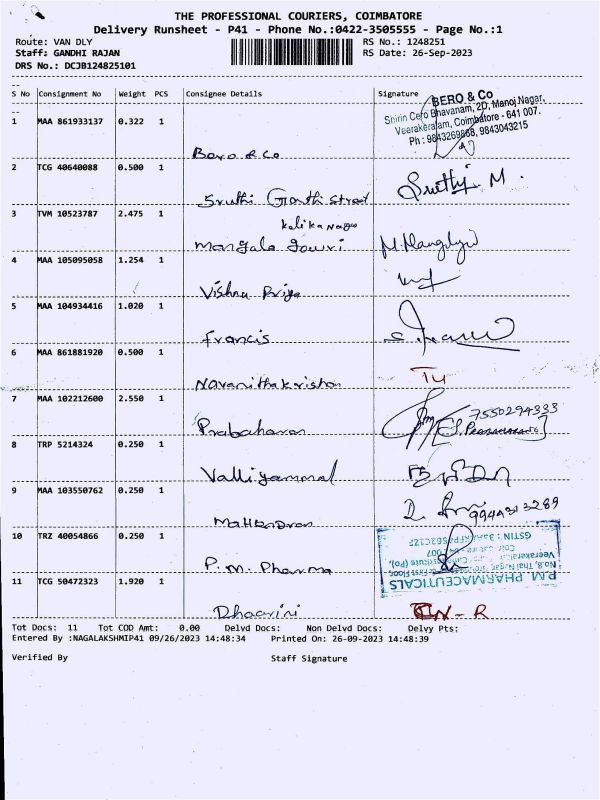 THE PROFESSIONAL COURIERS, COIMBATORE
Delivery Runsheet - P41 - Phone No.:0422-3505555 - Page No.:1
Route: VAN DLY RS No.: 1248251
Staff: GANDHI RAJAN RS Date: 26-Sep-2023
DRS No.: DCJB124825101
S No Consignment No Weight PCS Consignee Details Signature
BERO & Co
Shirin Cero Bhavanam, 2D, Manoj Nagar,
Veerakeralam, Coimbatore - 641 007.
Ph : 9843269868, 9843043215
1 MAA 861933137 0.322 1
Bero & Co
2 TCG 40640088 0.500 1
Sruthi Ganthi Street Sruthi M.
3 TVM 10523787 2.475 1
Kalika Nagar
Mangala Gowri
4 MAA 105095058 1.254 1
Vishnu Priya
5 MAA 104934416 1.020 1
Francis
6 MAA 861881920 0.500 1
Navanithakrishan
7 MAA 102212600 2.550 1
7550294333
Prabaharan
8 TRP 5214324 0.250 1
Valliyammal
9 MAA 103550762 0.250 1
Mahendran
10 TRZ 40054866 0.250 1
P.M. Pharma
P.M. PHARMACEUTICALS
11 TCG 50472323 1.920 1
Dhaarini
Tot Docs: 11 Tot COD Amt: 0.00 Delvd Docs: Non Delvd Docs: Delvy Pts:
Entered By :NAGALAKSHMIP41 09/26/2023 14:48:34 Printed On: 26-09-2023 14:48:39
Verified By Staff Signature